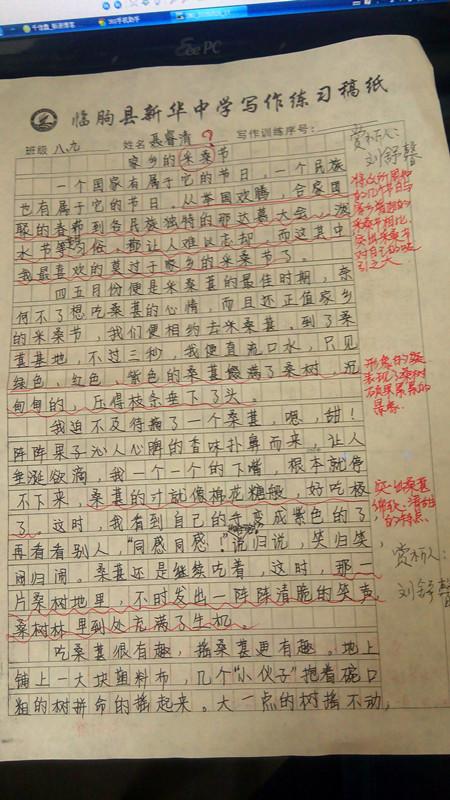 Eee PC
临朐县新华中学写作练习稿纸
班级 八、九 姓名 聂睿清 写作训练序号:
家乡的采桑节
一个国家有属于它的节日,一个民族
也有属于它的节日。从举国欢腾,合家团
聚的春节到各民族独特的那达慕大会、泼
水节等习俗,都让人难以忘却,而这其中
我最喜欢的莫过于家乡的采桑节了。
四五月份便是采桑葚的最佳时期,奈
何不了想吃桑葚的心情,而且还正值家乡
的采桑节,我们便相约去采桑葚。到了桑
葚基地,不过三秒,我便直流口水,只见
绿色,红色,紫色的桑葚缀满了桑树,沉
甸甸的,压得枝条垂下了头。
我迫不及待摘了一个桑葚,嗯,甜!
阵阵果子沁人心脾的香味扑鼻而来,让人
垂涎欲滴,我一个一个的下嘴,根本就停
不下来,桑葚的汁就像棉花糖般,好吃极
了。这时,我看到自己的手变成紫色的了,
再看看别人,“同感同感!”“哈哈”说归说,笑归笑,
闹归闹。桑葚还是继续吃着,这时,那一
片桑树地里,不时发出一阵阵清脆的笑声,
桑树林里到处充满了生机。
吃桑葚很有趣,摇桑葚更有趣。地上
铺上一大块塑料布,几个“小伙子”抱着碗口
粗的树拼命的摇起来。大一点的树摇不动,
赏析人:
刘舒馨
采桑节相比,
突出采桑节
对自己的吸
引之大
表现了桑树
硕果累累的
景象.
突出桑葚
的特点.
赏析人:
刘舒馨